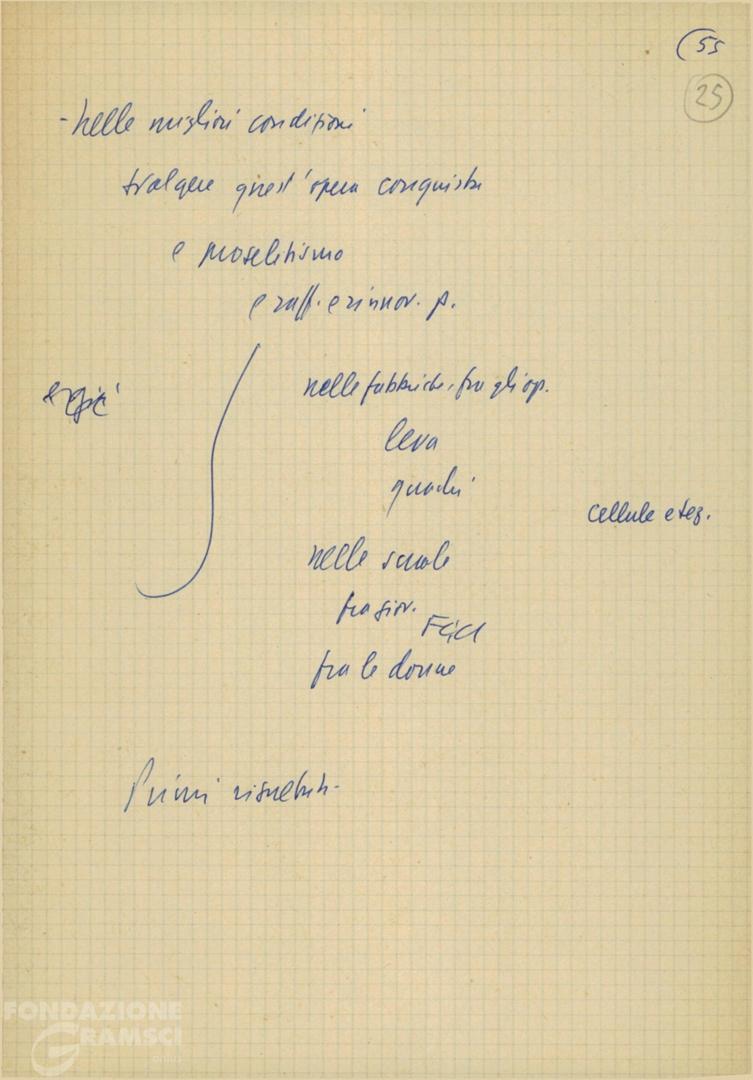 (55
25
- nelle migliori condizioni
svolgere quest'opera conquista
e proselitismo
e raff. e rinnov. p.
nelle fabbriche, fra gli op.
leva
quadri
cellule e sez.
nelle scuole
fra giov. FGCI
fra le donne
Primi risultati -
FONDAZIONE
GRAMSCI